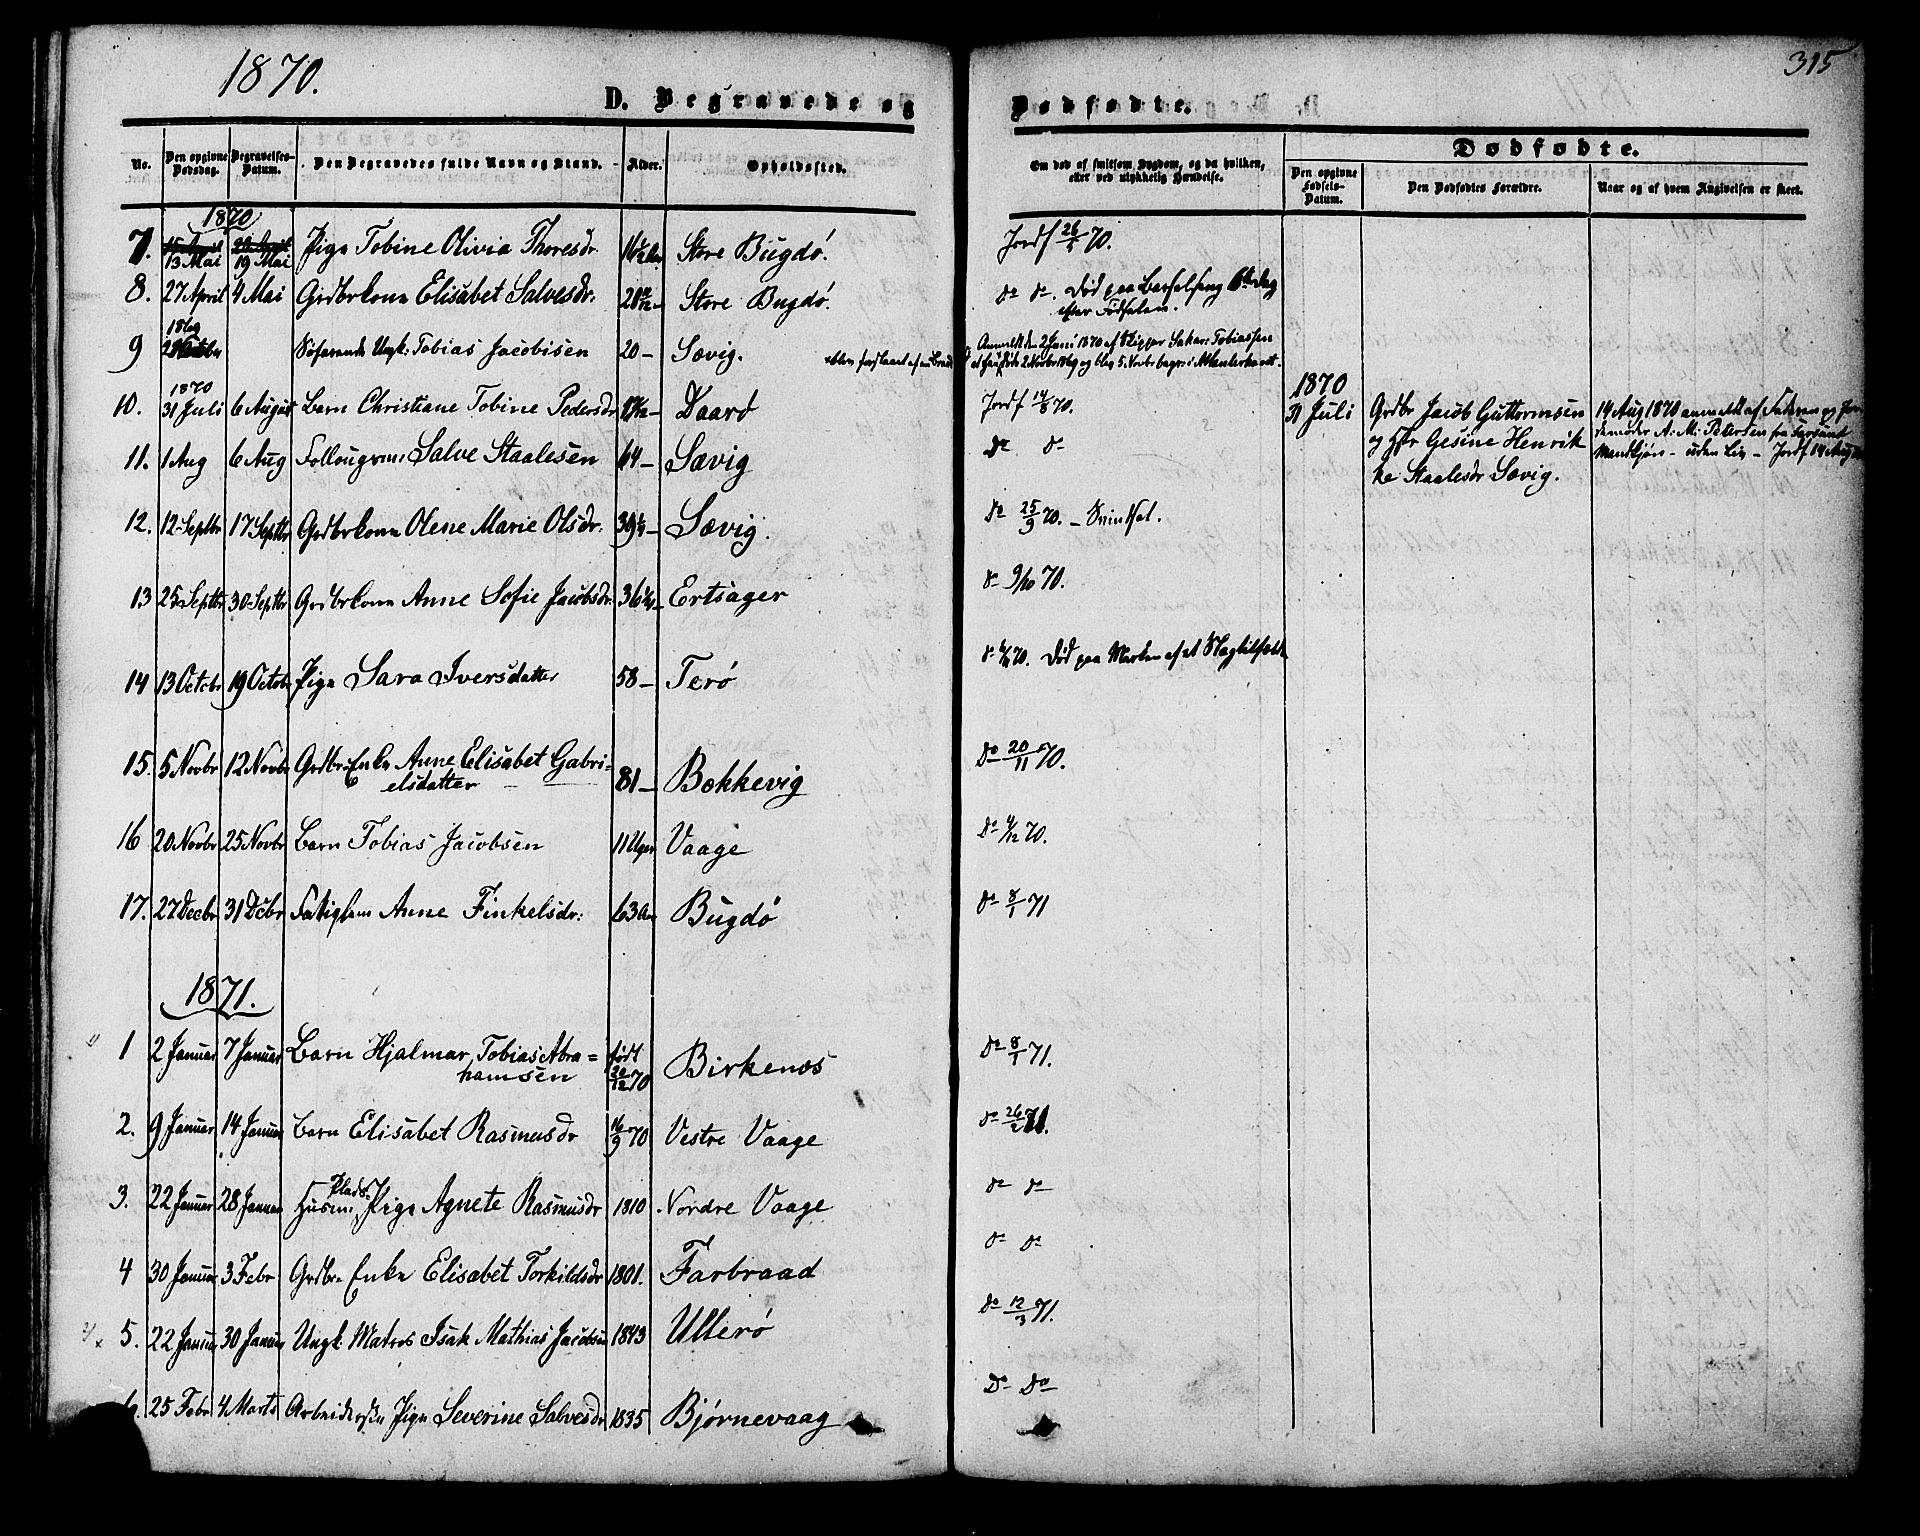 1870.
315
D. Begravede og
Dødfødte.
No.
Den opgivne Dødsdag.
Begravelses-Datum.
Den Begravedes fulde Navn og Stand.
Alder.
Opholdssted.
Om død af smitsom Sygdom, og da hvilken, eller ved ulykkelig Hændelse.
Dødfødte.
Den opgivne Fødsels-Datum.
Den Dødfødtes Forældre.
Naar og af hvem Angivelsen er skeet.
1870
7. 13 Mai 19 Mai Pige Tobine Olivia Thoresdr Store Bugdø. Jordf 26/5 70.
8. 27 April 4 Mai Grdbrkone Elisabet Salvesdr. Store Bugdø. do do. Død paa Barselseng 6te Dag
efter Fødselen.
1869
9 Søfarende Ungk. Tobias Jacobsen 20 – Sævig. Anmeldt den 2 Juni 1870 af Skipper Tobiassen
1870
10. 31 Juli 6 August Barn Christiane Tobine Pedersdr Daarø Jordf 14/8 70.
1870
31 Juli Grdbr Jacob Guttormsen
og Hstr Gesine Henrik
ke Staalesdr Sævig.
14 Aug 1870 anmeldt af Faderen og Jor
demoder A. M. Petersen fra Farsund
Mandkjøn – uden Liv – Jordf 14 Aug
11. 1 Aug 6 Aug Salve Staalesen 64 – Sævig do do
12. 12 Septbr 17 Septbr Grdbrkone Olene Marie Olsdr. Sævig. do 25/9 70. – Svindsot.
13 25 Septbr 30 Septbr Grdbrkone Anne Sofie Jacobsdr. Ertsager do 9/10 70.
14 13 Octobr 19 Octobr Pige Sara Iversdatter 58 – Terø Død paa Marken af et Slagtilfælde
15. 5 Novbr 12 Novbr Grdbr. Enke Anne Elisabet Gabri-
elsdatter 81 – Bækkevig do 20/11 70.
16 20 Novbr 25 Novbr Barn Tobias Jacobsen 11 Uger Vaage do 4/12 70.
17. 27 Decbr 31 Decbr Fattiglem Anne Finkelsdr: 63 Aar Bugdø do 8/1 71
1871.
1 2 Januar 7 Januar Barn Hjalmar Tobias Abra=
hamsen født 20/12 70 Birkenæs do 8/1 71.
2. 9 Januar 14 Januar Barn Elisabet Rasmusdr 16/9 70 Vestre Vaage do 26/2 71.
3. 22 Januar 28 Januar Husm Plads Pige Agnete Rasmusdr 1810 Nordre Vaage do do
4 30 Januar 3 Febr Grdbr. Enke Elisabet Torkildsdr 1801. Farbraad do do
5. 22 Januar 30 Januar Ungk. Matros Isak Mathias Jacobsen 1843 Ullerø do 12/3 71.
6. 25 Febr 4 Marts Arbeiderske Pige Severine Salvesdr 1835 Bjørnevaag Do Do